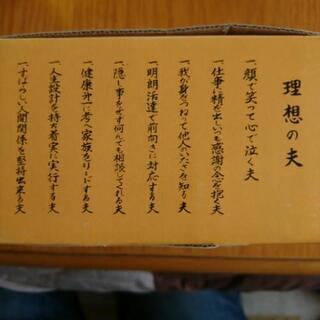 理想の夫
一、顔で笑って心で泣く夫
一、仕事に精を出しいつも感謝の念を抱く夫
一、我が身をつねって他人のいたさを知る夫
一、明朗活達で前向きに対応する夫
一、隠し事をせず何んでも相談してくれる夫
一、健康第一に考へ家族をリードする夫
一、人生設計を持ち着実に実行する夫
一、すばらしい人間関係を堅持出来る夫